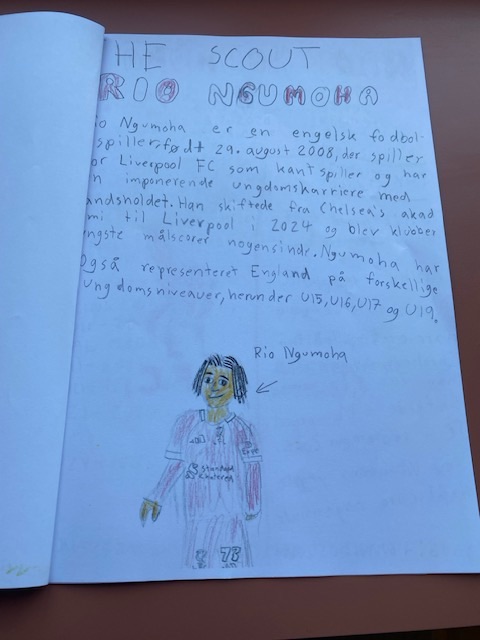 HE SCOUT
RIO NGUMOHA
io Ngumoha er en engelsk fodbol-
spiller, født 29. august 2008, der spiller
or Liverpool FC som kantspiller og har
n imponerende ungdomskarriere med
andsholdet. Han skiftede fra Chelsea's akad
mi til Liverpool i 2024 og blev klubbens
ngste målscorer nogensinde. Ngumoha har
også representeret England på forskellige
ungdomsniveauer, herunder U15, U16, U17 og U19.
Rio Ngumoha
Standard
73